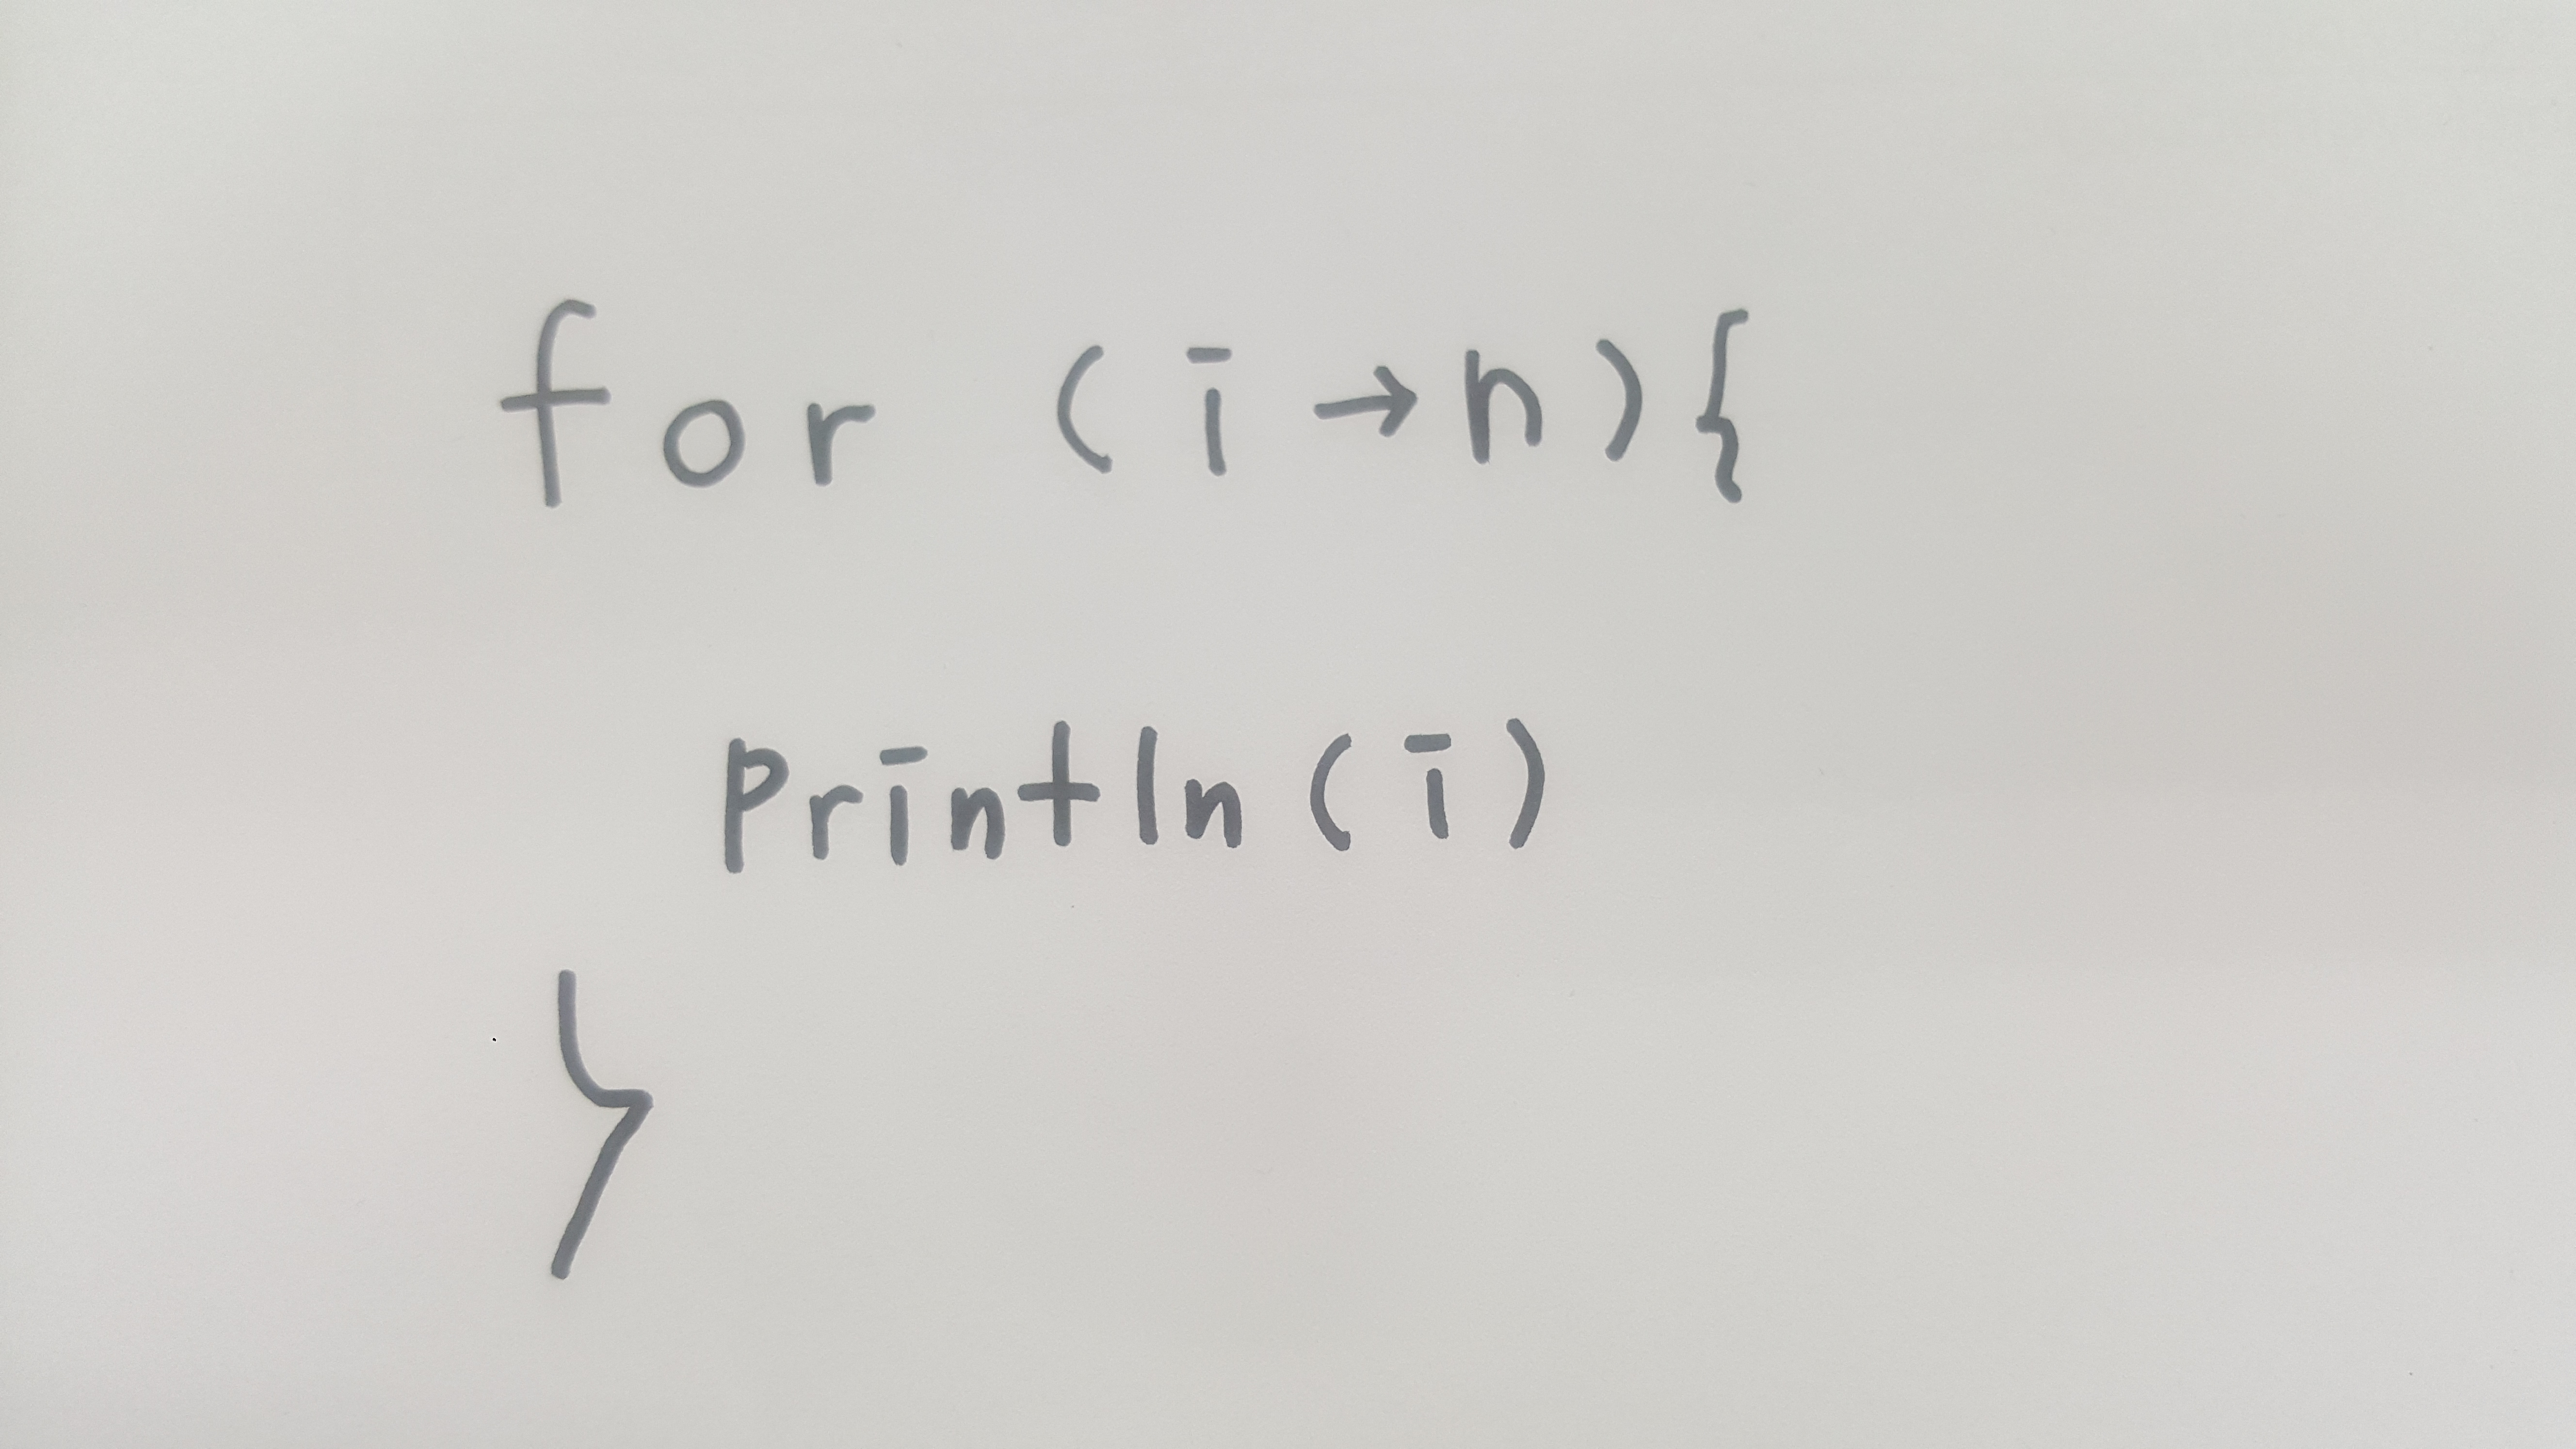 for (i → n){
println(i)
}